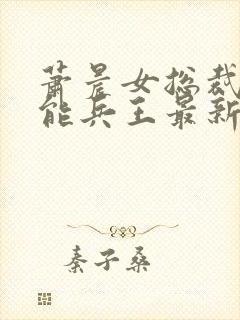 萧晨女总裁
能兵王最新
秦子桑